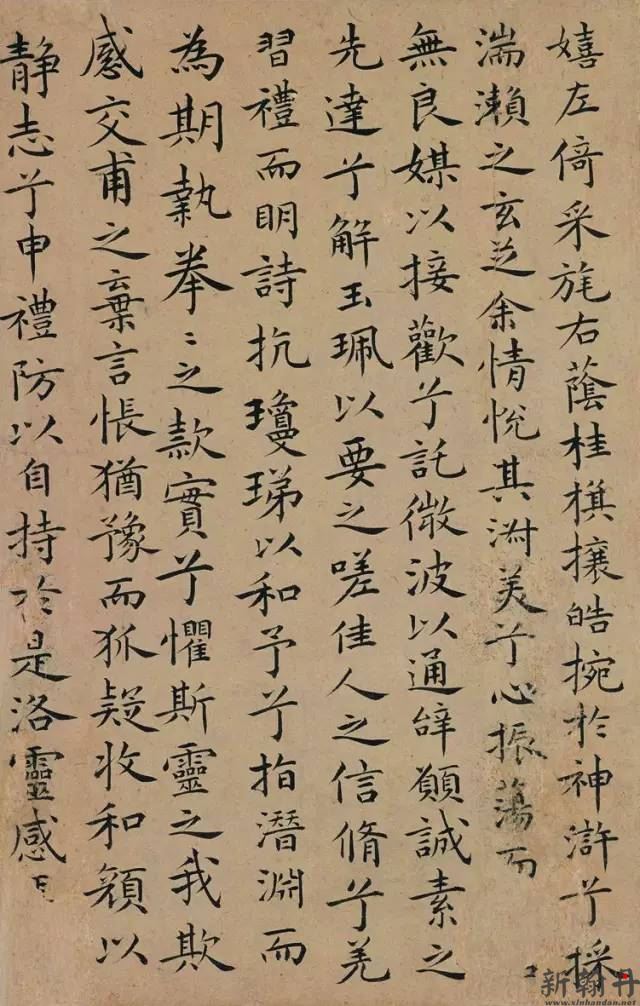 嬉左倚采旄右蔭桂旗攘皓捥於神滸兮採
湍瀨之玄芝余情悅其淑美兮心振蕩而
無良媒以接歡兮託微波以通辝願誠素之
先達兮解玉珮以要之嗟佳人之信脩兮羌
習禮而明詩抗瓊珶以和予兮指潛淵而
為期執拳〻之款實兮懼斯靈之我欺
感交甫之棄言悵猶豫而狐疑收和顏以
静志兮申禮防以自持於是洛靈感
新翰丹
www.xinhandan.net